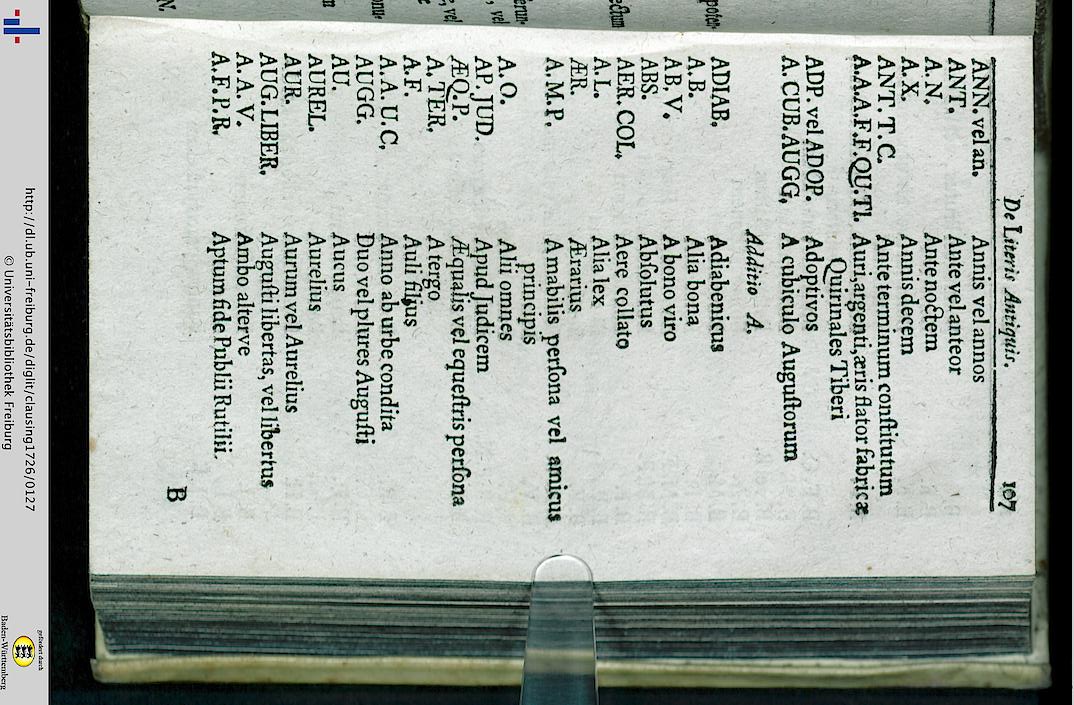 De Literis Antiquis. 107
ANN. vel an. Annis vel annos
ANT. Ante vel anteor
A. N. Ante noctem
A. X. Annis decem
ANT. T. C. Ante terminium conſtitutum
A. A. A. F. F. QU. TI. Auri, argenti, æris flator fabricæ
Quirinales Tiberi
ADP. vel ADOP. Adoptivos
A. CUB. AUGG, A cubiculo Auguſtorum
Additio A.
ADIAB. Adiabenicus
A. B. Alia bona
AB. V. A bono viro
ABS. Abſolutus
AER. COL. Aere collato
A. L. Alia lex
ÆR. Ærarius
A. M. P. Amabilis perſona vel amicus
principis
A. O. Alii omnes
AP. JUD. Apud Judicem
ÆQ. P. Æqualis vel equeſtris perſona
A. TER. A tergo
A. F. Auli filius
A. A. U. C, Anno ab urbe condita
AUGG. Duo vel plures Auguſti
AU. Aucus
AUREL. Aurelius
AUR. Aurum vel Aurelius
AUG. LIBER. Auguſti libertas, vel libertus
A. A. V. Ambo alterve
A. F. P. R. Aptum fide Publii Rutilii.
B
http://dl.ub.uni-freiburg.de/diglit/clausing1726/0127
© Universitätsbibliothek Freiburg
gefördert durch
Baden-Württemberg